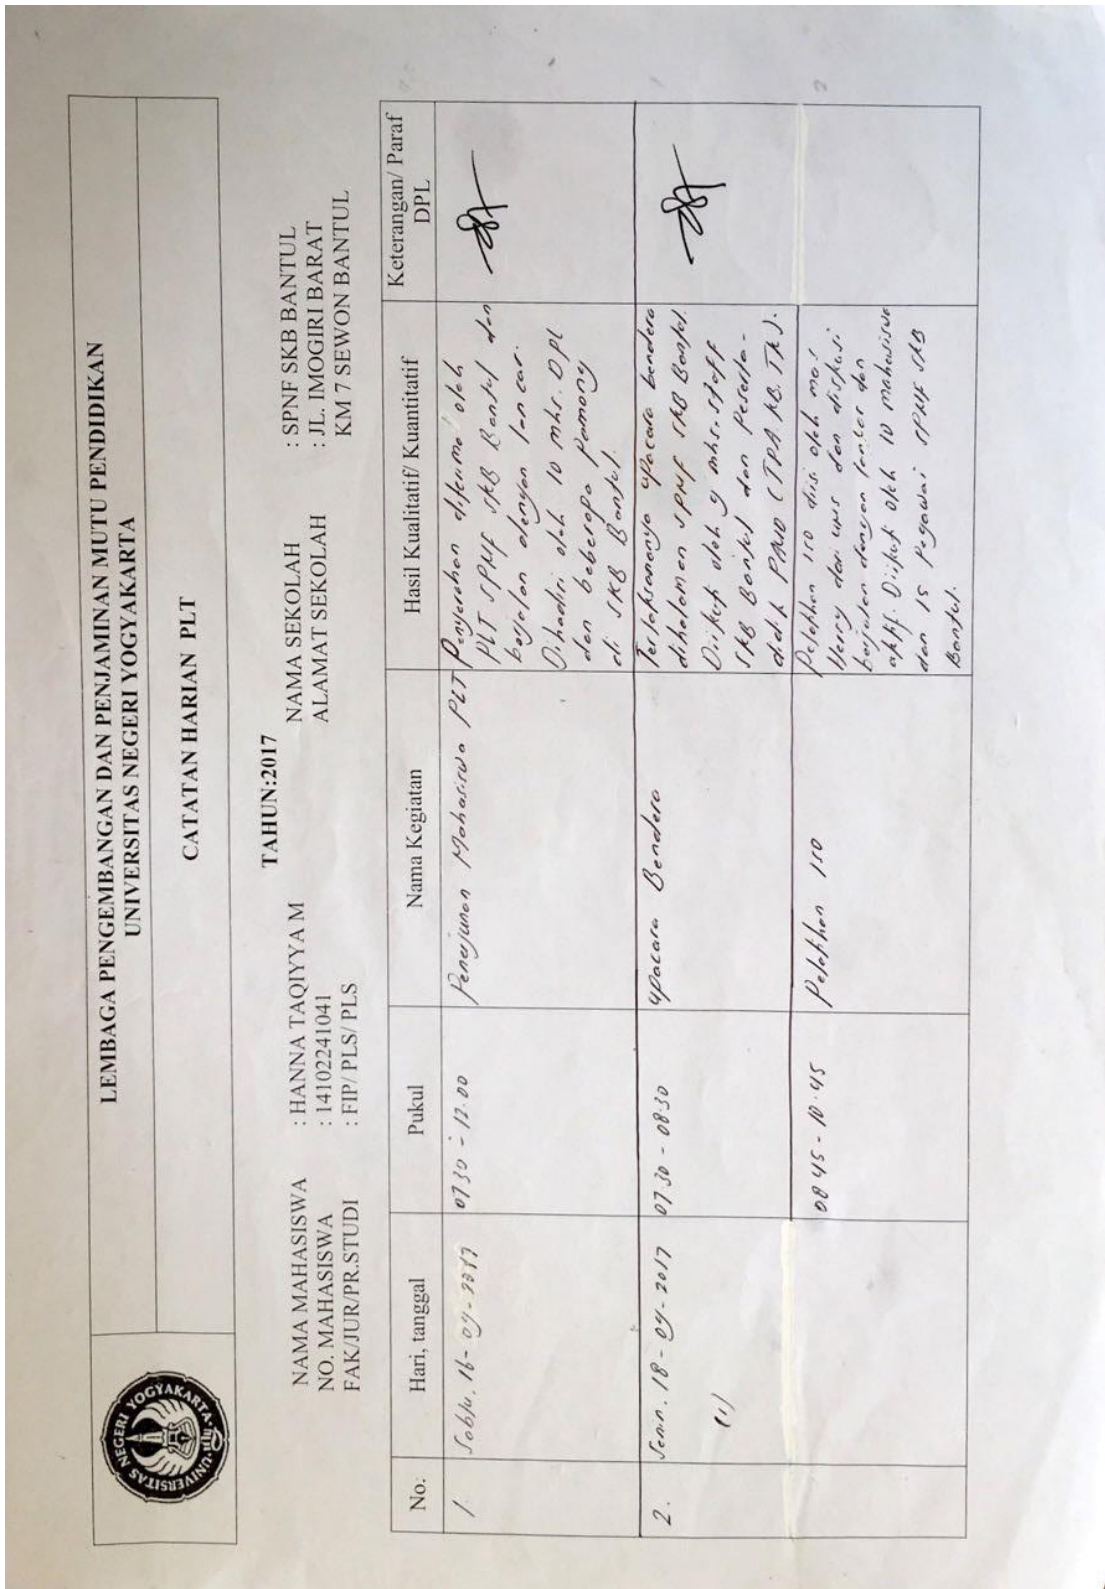 LEMBAGA PENGEMBANGAN DAN PENJAMINAN MUTU PENDIDIKAN
UNIVERSITAS NEGERI YOGYAKARTA
CATATAN HARIAN PLT
UNIVERSITAS NEGERI YOGYAKARTA
TAHUN:2017
NAMA MAHASISWA : HANNA TAQIYYA M
NO. MAHASISWA : 14102241041
FAK/JUR/PR.STUDI : FIP/ PLS/ PLS
NAMA SEKOLAH : SPNF SKB BANTUL
ALAMAT SEKOLAH : JL. IMOGIRI BARAT
KM 7 SEWON BANTUL
No. Hari, tanggal Pukul Nama Kegiatan Hasil Kualitatif/ Kuantitatif Keterangan/ Paraf
DPL
1. Sabtu, 16-09-2017 07.30 - 12.00 Penerjunan Mahasiswa PLT Penyerahan diterima oleh
PLT SPNF SKB Bantul dan
berjalan dengan lancar.
Dihadiri oleh 10 mhs. DPL
dan beberapa Pamong
di SKB Bantul.
2. Senin, 18-09-2017 07.30 - 08.30 Upacara Bendera Terlaksananya upacara bendera
dihalaman SPNF SKB Bantul.
Diikuti oleh 9 mhs. staff
SKB Bantul dan Peserta-
didik PAUD (TPA, KB, TK).
08.45 - 10.45 Pelatihan ISO Pelatihan ISO diisi oleh
Herry dari dan diskusi
berjalan dengan lancar dan
aktif. Diikuti oleh 10 mahasiswa
dan 15 Pegawai SPNF SKB
Bantul.